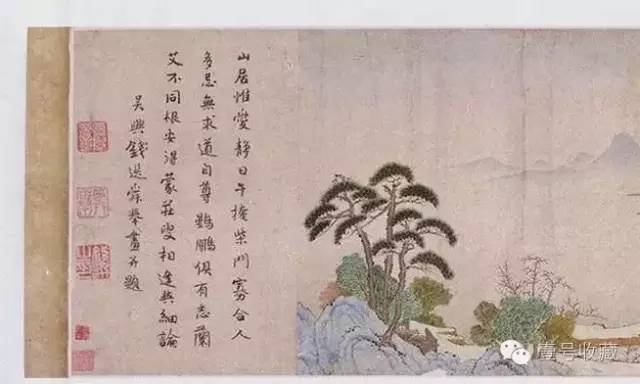 山居惟愛靜日午掩柴門寡合人
多忌無求道自尊鷃鵬俱有志蘭
艾不同根安得蒙莊叟相逢與細論
吳興錢選舜舉畫并題
壹号收藏